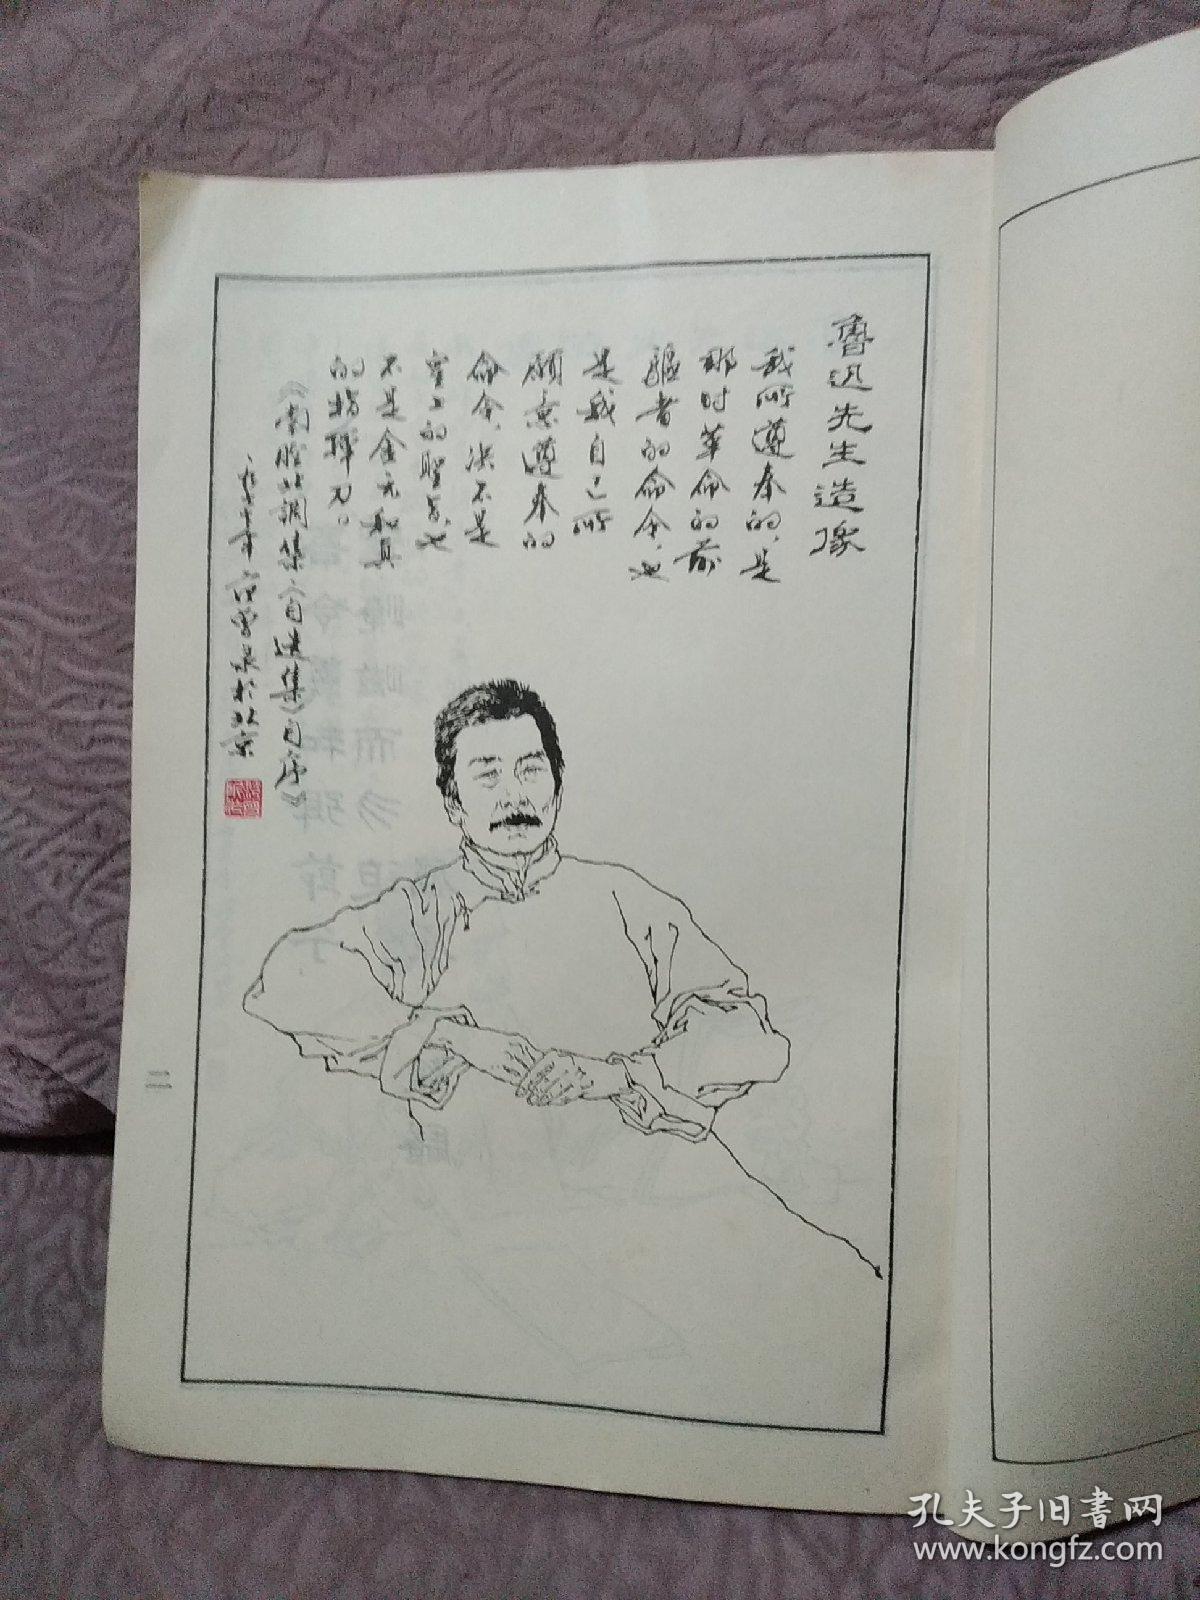 魯迅先生造像
我所遵奉的,是
那时革命的前
驱者的命令,也
是我自己所
愿意遵奉的
命令,决不是
皇上的聖旨,也
不是金元和真
的指揮刀。
《南腔北調集《自选集》自序》
一九七七年 范曾 於北京
二
孔夫子旧書网
www.kongfz.com